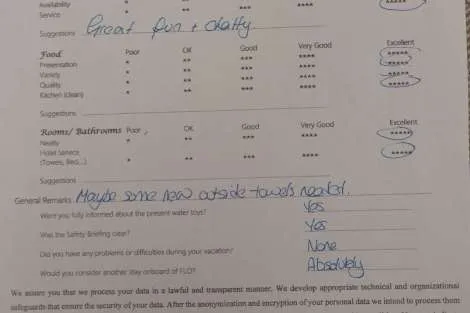 Availability * ** *** **** *****
Service * ** *** **** *****
Suggestions Great fun + chatty
Food Poor OK Good Very Good Excellent
Presentation * ** *** **** *****
Variety * ** *** **** *****
Quality * ** *** **** *****
Kitchen (clean) * ** *** **** *****
Suggestions
Rooms/ Bathrooms Poor OK Good Very Good Excellent
Neatly * ** *** **** *****
Hotel Service
(Towels, Bed,...) * ** *** **** *****
Suggestions
General Remarks Maybe some new outside towels needed.
Were you fully informed about the present water toys? Yes
Was the Safety Briefing clear? Yes
Did you have any problems or difficulties during your vacation? None
Would you consider another stay onboard of FLO? Absolutely
We assure you that we process your data in a lawful and transparent manner. We develop appropriate technical and organizational
safeguards that ensure the security of your data. After the anonymization and encryption of your personal data we intend to process them